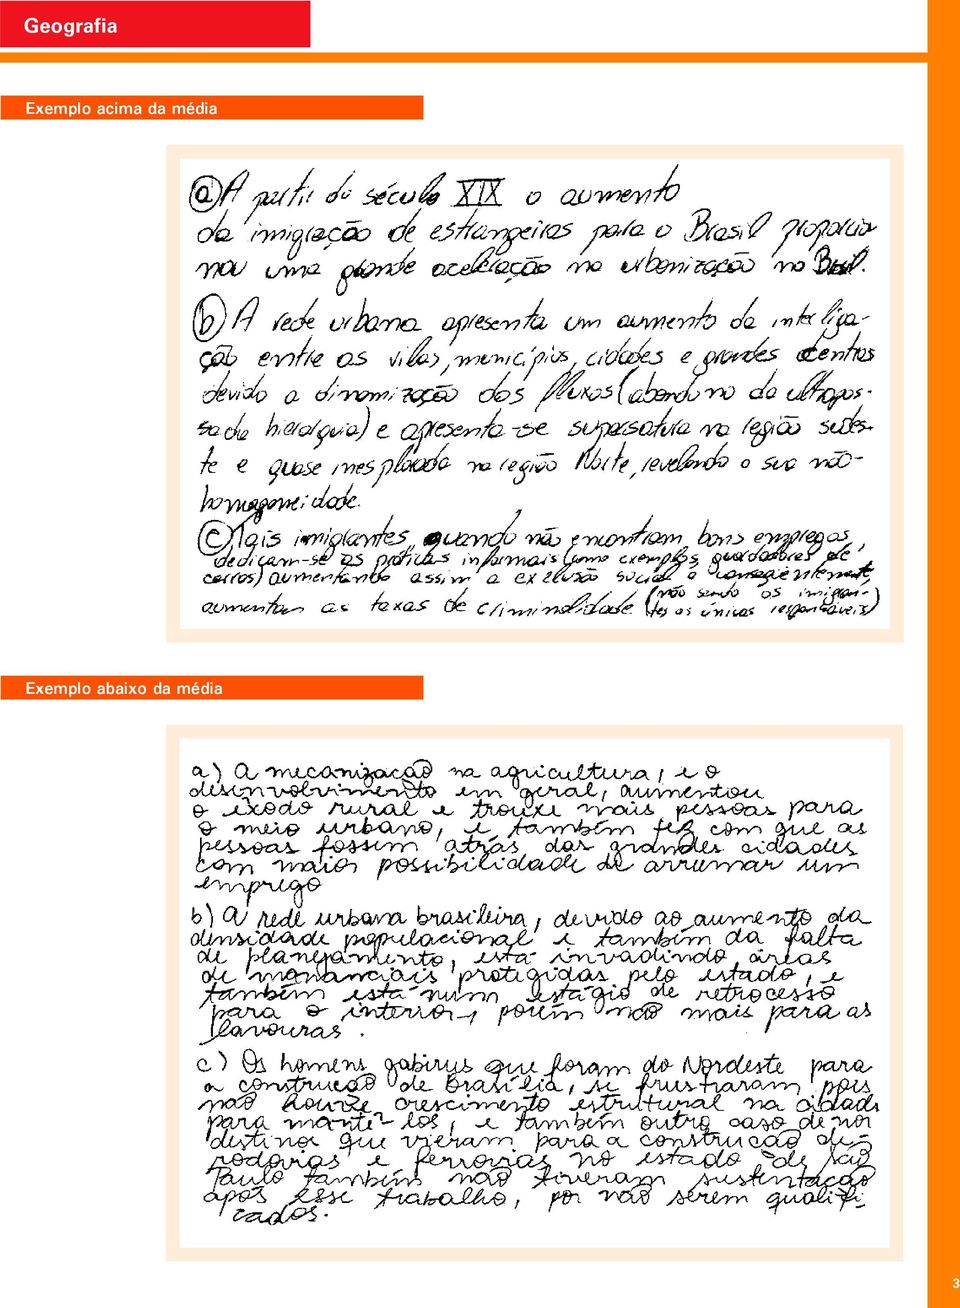 Geografia
Exemplo acima da média
a) A partir do século XIX o aumento
da imigração de estrangeiros para o Brasil proporcio-
nou uma grande aceleração na urbanização no Brasil.
b) A rede urbana apresenta um aumento da interliga-
ção entre as vilas, municípios, cidades e grandes centros
devido a dinamização dos fluxos (abandono da ultrapas-
sada hierarquia) e apresenta-se supersatura na região sudes-
te e quase inesplorada na região Norte, revelando a sua não-
homogeneidade.
c) Mais imigrantes, quando não encontram bons empregos,
dedicam-se as práticas informais (como exemplos, guardadores de
carros) aumentando assim a exclusão social e conseqüentemente,
aumentam as taxas de criminalidade (não sendo os imigran-
tes os únicos responsáveis)
Exemplo abaixo da média
a) A mecanização na agricultura, e o
desenvolvimento em geral, aumentou
o exodo rural e trouxe mais pessoas para
o meio urbano, e também fez com que as
pessoas fossem atrás das grandes cidades
com maior possibilidade de arrumar um
emprego
b) A rede urbana brasileira, devido ao aumento da
densidade populacional e também da falta
de planejamento, está invadindo áreas
de mananciais protigidas pelo estado, e
também está num estágio de retrocesso
para o interior, porém não mais para as
lavouras.
c) Os homens gabirus que foram do Nordeste para
a construção de Brasília, se frustraram pois
não houve crescimento estrutural na cidade
para mantê-los, e também outro caso de nor
destinos que vieram para a construção de
rodovias e ferrovias no estado de São
Paulo também não tiveram sustentação
após esse trabalho, por não serem qualifi
cados.
3